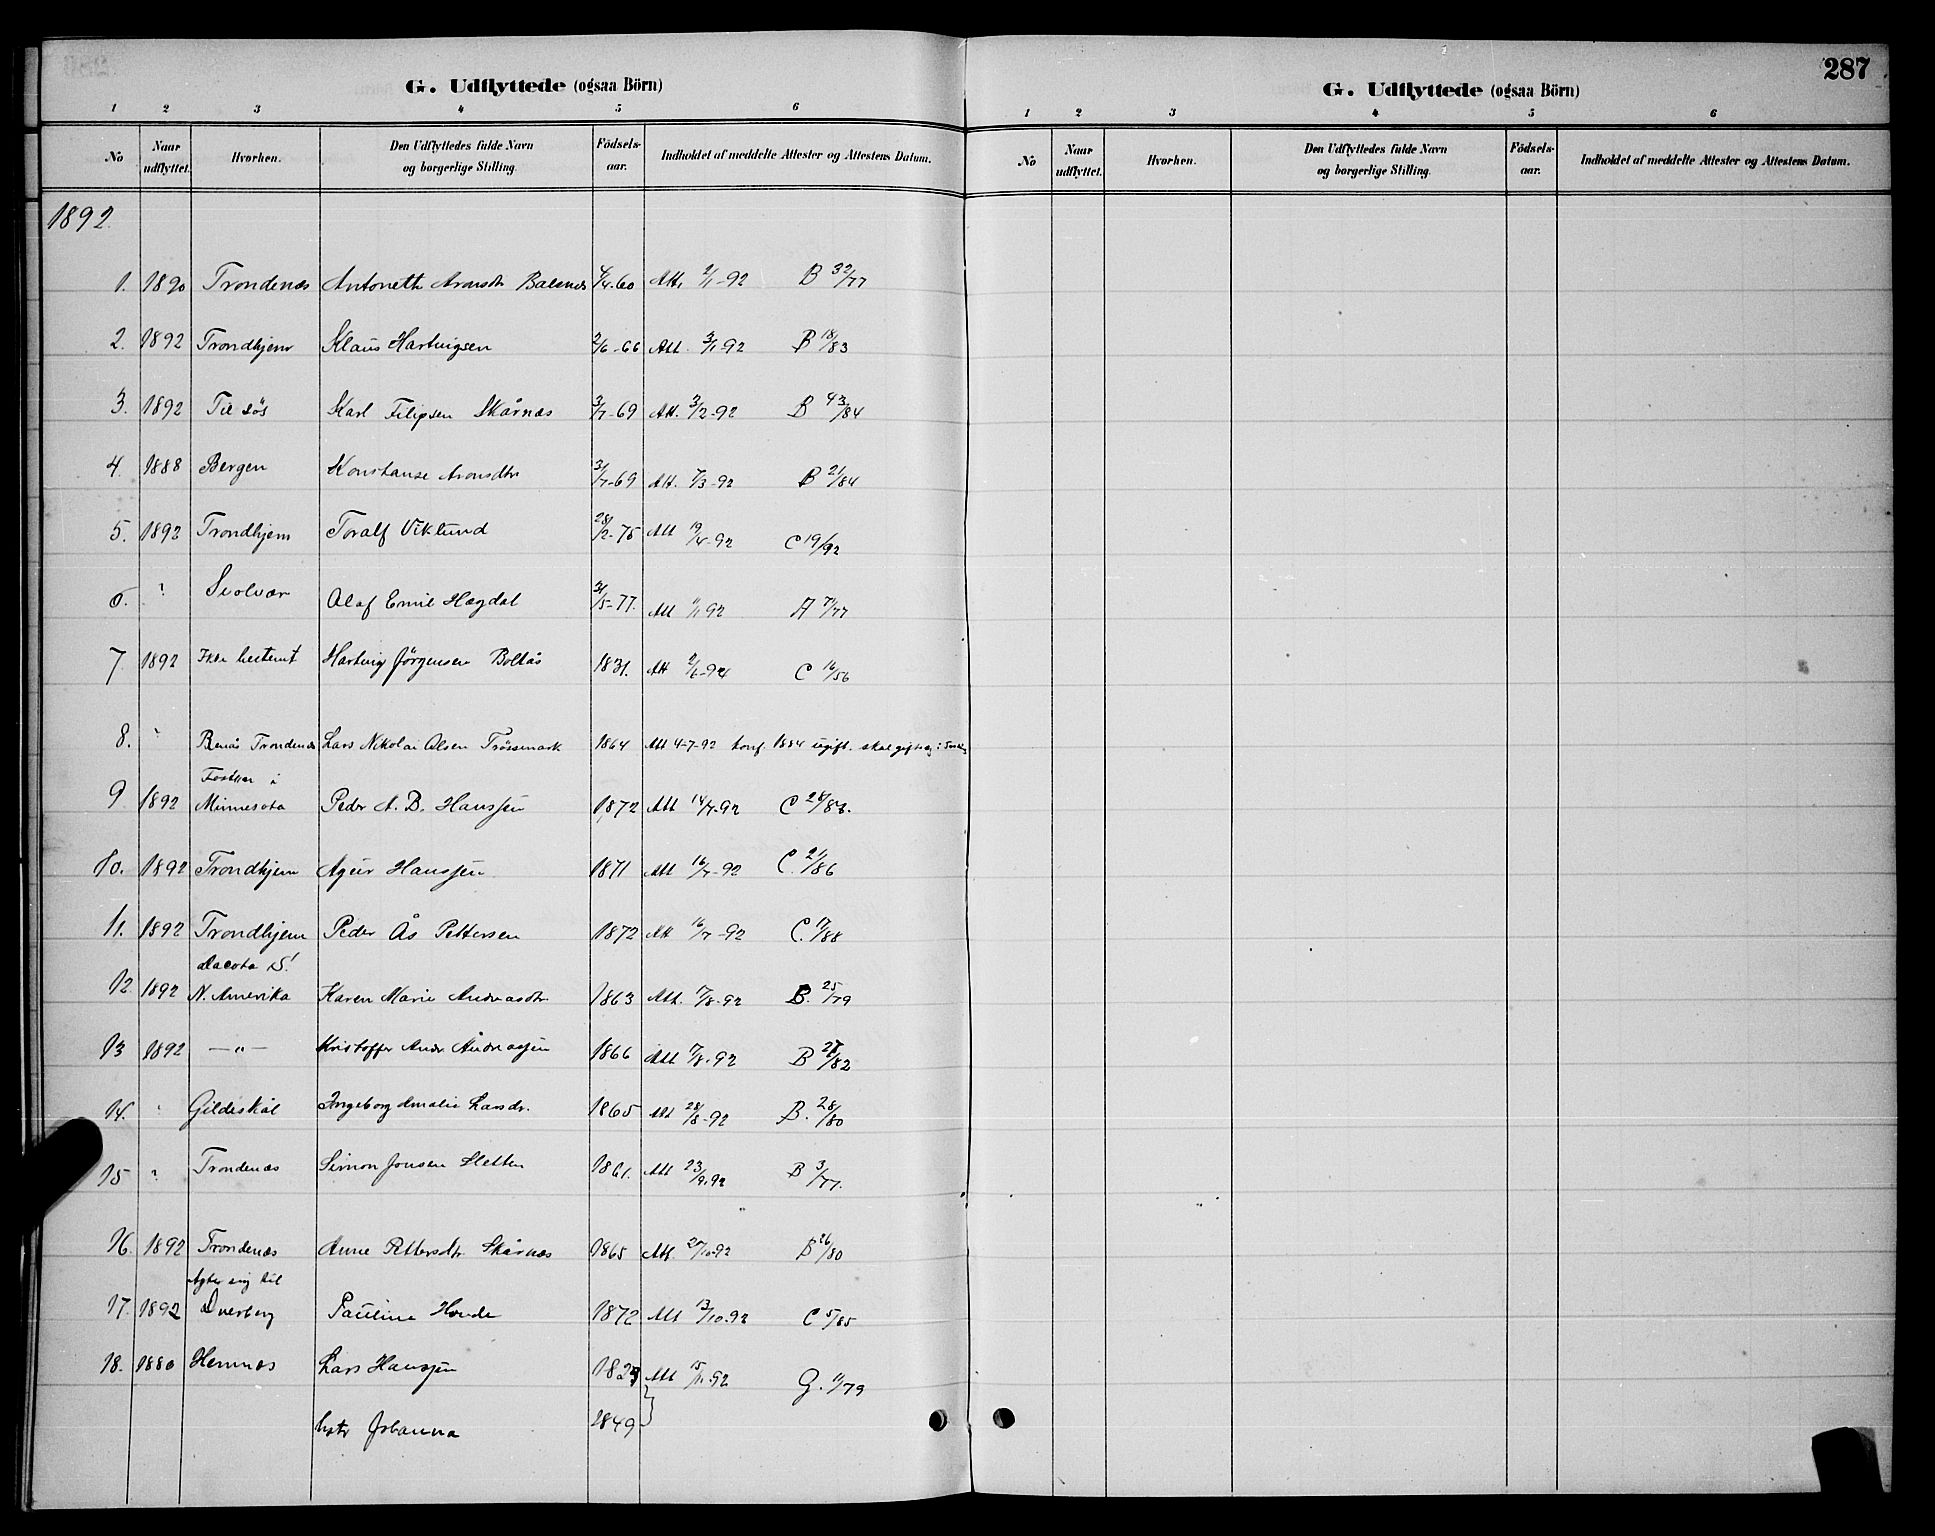 287
G. Udflyttede (ogsaa Börn)
1 2 3 4 5 6
No Naar udflyttet. Hvorhen. Den Udflyttedes fulde Navn og borgerlige Stilling. Födsels-aar. Indholdet af meddelte Attester og Attestens Datum.
1892
1. 1890 Trondenæs Antonette Aronsdtr Balsnes 4/4-60 Att. 2/1-92 B 32/77
2. 1892 Trondhjem Klaus Hartvigsen 2/6-66 Att. 3/1-92 B 18/83
3. 1892 Til søs Karl Filipsen Skårnæs 3/7-69 Att. 3/2-92 B 43/84
4. 1888 Bergen Konstanse Aronsdtr 3/7-69 Att. 7/3-92 B 21/84
5. 1892 Trondhjem Toralf Viklund 28/2-75 Att 19/4-92 C 19/92
6. " Svolvær Olaf Emil Hegdal 31/5-77. Att 1/1 92 A 7/77
7. 1892 Ikke bestemt Hartvig Jörgensen Boltås 1831. Att 2/6-92 C 16/56
8. " Renås Trondenæs Lars Nikolai Olsen Trössemark 1864 Att 4-7-92 konf. 1884 ugift. skal giftes i
Foston i
9 1892 Minnesota Peder N. B. Hanssen 1872 Att 14/7-92 C
10. 1892 Trondhjem Ageir Hanssen 1871 Att 16/7-92 C. 21/86
11. 1892 Trondhjem Peder Ås Pettersen 1872 Att 16/7-92 C. 17/88
Dacota S!
12 1892 N. Amerika Karen Marie Andreasdtr 1863 Att. 17/8-92 B. 25/79
13 1892 —"— Kristoffer Andr. Andreassen 1866 Att 17/8.92 B 28/82
14. " Gildeskål Ingeborg Amalie Larsdr. 1865 Att 28/8-92 B. 28/80
15 " Trondenæs Simon Jonsen Sletten 1861. Att 23/9.92 B 3/77.
16. 1892 Trondenæs Anne Pettersdtr Skårnæs 1865 Att. 2/10-92 B 26/80
Agter sig til
17. 1892 Dverberg Pauline Hovde 1872 Att 13/10-92 C 5/85
18. 1880 Hemnæs Lars Hanssen 1823 Att 15/11.92 G. 11/79
hstr Johanna 1849
G. Udflyttede (ogsaa Börn)
1 2 3 4 5 6
No Naar udflyttet. Hvorhen. Den Udflyttedes fulde Navn og borgerlige Stilling. Födsels-aar. Indholdet af meddelte Attester og Attestens Datum.